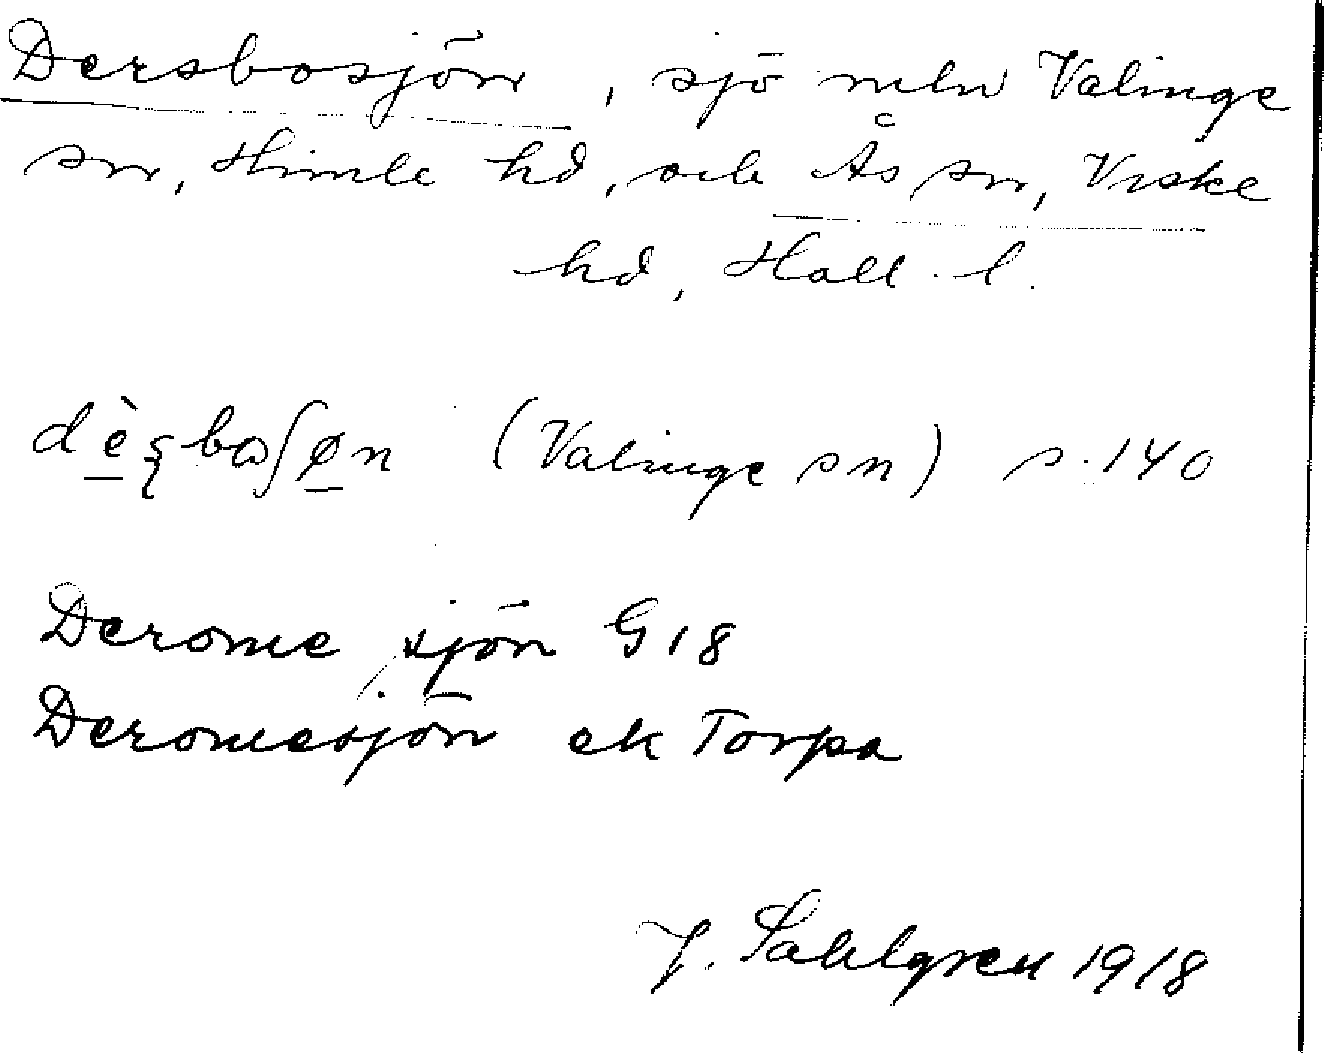 Dersbosjön, sjö mln Valinge
sn, Himle hd, och Ås sn, Viske
hd, Hall. l.
(Valinge sn) s. 140
Derome sjön G 18
Deromesjön ek Torpa
J. Sahlgren 1918